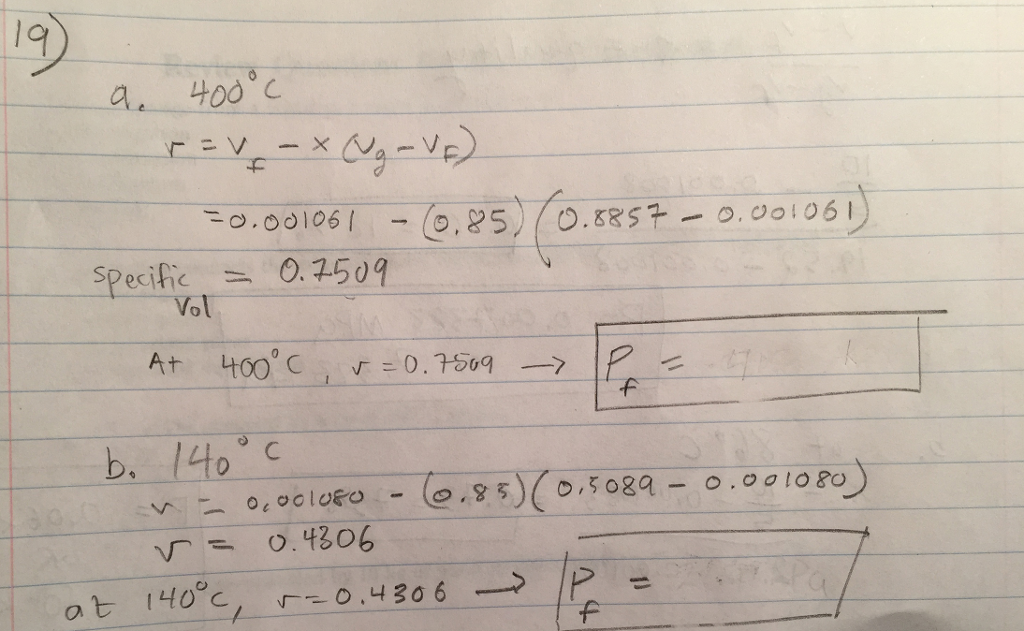 19)
a. 400°C
v = v_f - x (v_g - v_F)
= 0.001061 - (0.85) (0.8857 - 0.001061)
specific = 0.7509
Vol
At 400°C, v = 0.7509 → P_f =
b. 140°C
v = 0.001080 - (0.85) (0.5089 - 0.001080)
v = 0.4306
at 140°C, v = 0.4306 → P_f =